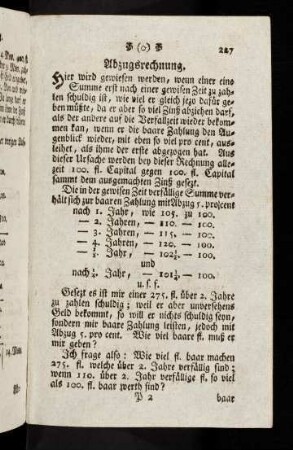 ❦ (o) ❦ 227
Abzugsrechnung.
Hier wird gewiesen werden, wenn einer eine
Summe erst nach einer gewisen Zeit zu zah-
len schuldig ist, wie viel er gleich jezo dafür ge-
ben müßte, da er aber so viel Zinß abziehen darf,
als der andere auf die Verfallzeit wieder bekom-
men kan, wenn er die baare Zahlung den Au-
genblick wieder, mit eben so viel pro cent, aus-
leihet, als ihme der erste abgezogen hat. Aus
dieser Ursache werden bey dieser Rechnung alle-
zeit 100. fl. Capital gegen 100. fl. Capital
sammt dem ausgemachten Zinß gesezt.
Die in der gewisen Zeit verfällige Summe ver-
hält sich zur baaren Zahlung mit Abzug 5. procent
nach 1. Jahr, wie 105. zu 100.
— 2. Jahren, — 110. — 100.
— 3. Jahren, — 115. — 100.
— 4. Jahren, — 120. — 100.
— ½. Jahr, — 102½. — 100.
und
nach ¼. Jahr, — 101¼. — 100.
u. s. f.
Gesezt es ist mir einer 275. fl. über 2. Jahre
zu zahlen schuldig; weil er aber unversehens
Geld bekommt, so will er nichts schuldig seyn,
sondern mir baare Zahlung leisten, jedoch mit
Abzug 5. pro cent. Wie viel baare fl. muß er
mir geben?
Ich frage also: Wie viel fl. baar machen
275. fl. welche über 2. Jahre verfällig sind;
wenn 110. über 2. Jahr verfällige fl. so viel
als 100. fl. baar werth sind?
P 2 baar